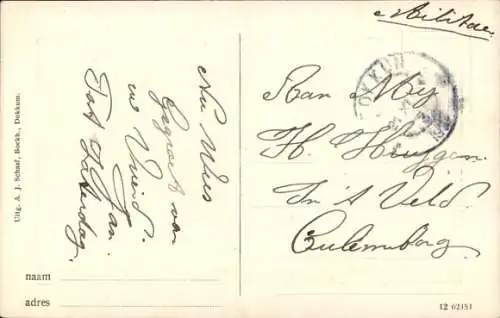 Militair
DOKKUM
Aan Mej
H. Heuggen
In 't Veld.
Culemborg
Nu Wees
Gegroet van
uw Vriend.
Jan.
Tot Zaterdag.
Uitg. A. J. Schaaf, Boekh., Dokkum.
naam
adres
12 62151